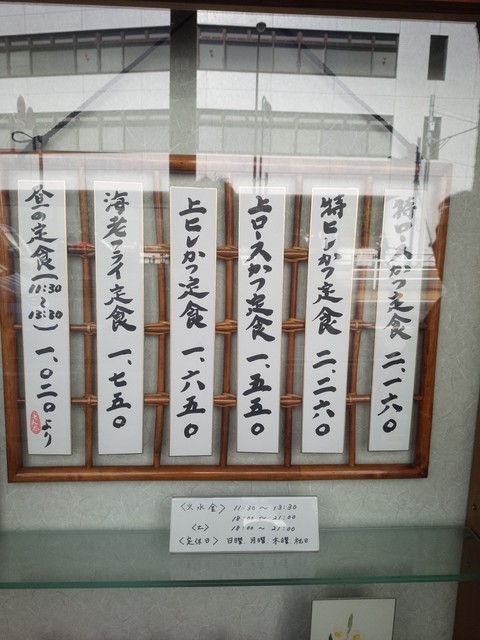 特ロースかつ定食 二、一六〇
特ヒレかつ定食 二、二六〇
上ロースかつ定食 一、五五〇
上ヒレかつ定食 一、六五〇
海老フライ定食 一、七五〇
昼の定食(11:30～13:30) 一、〇二〇より
〈火水金〉 11:30 ～ 13:30
18:00 ～ 21:00
〈土〉 18:00 ～ 21:00
〈定休日〉 日曜、月曜、木曜、祝日